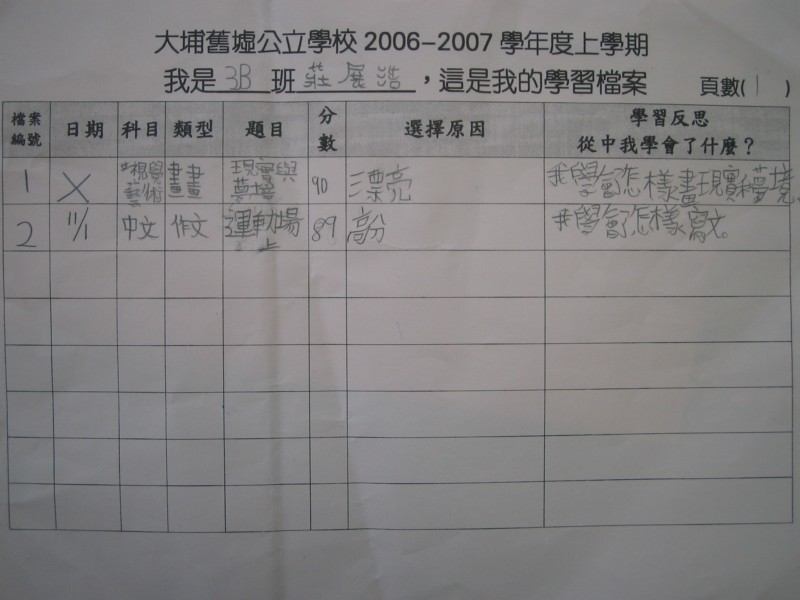 大埔舊墟公立學校 2006-2007 學年度上學期
我是 3B 班 莊展浩 ,這是我的學習檔案 頁數( 1 )
檔案編號 日期 科目 類型 題目 分數 選擇原因 學習反思 從中我學會了什麼?
1 X 視覺藝術 畫畫 現實與夢境 90 漂亮 我學會怎樣畫現實和夢境。
2 11/1 中文 作文 運動場上 89 高分 我學會了怎樣寫文。